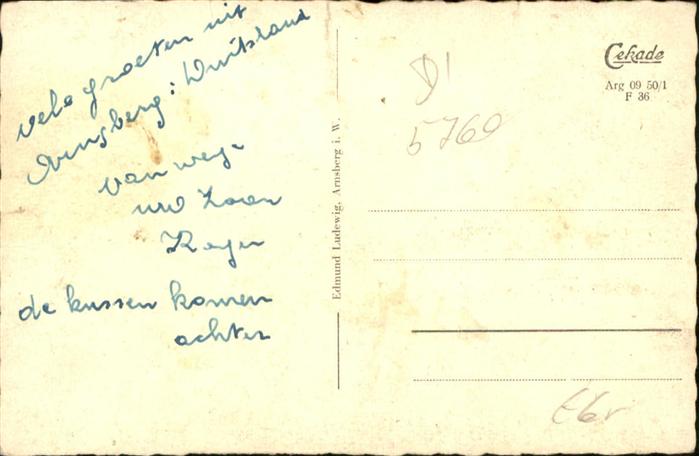 vele groeten uit
Arnsberg: Duitsland
van wege
uw Zoon
Roger
de kussen komen
achter
Edmund Ludewig, Arnsberg i. W.
Cekade
Arg 09 50/1
F 36
D1
5760